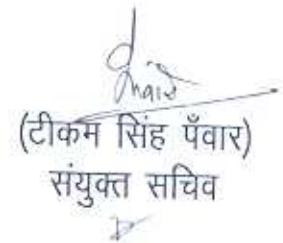 (टीकम सिंह पँवार)
संयुक्त सचिव